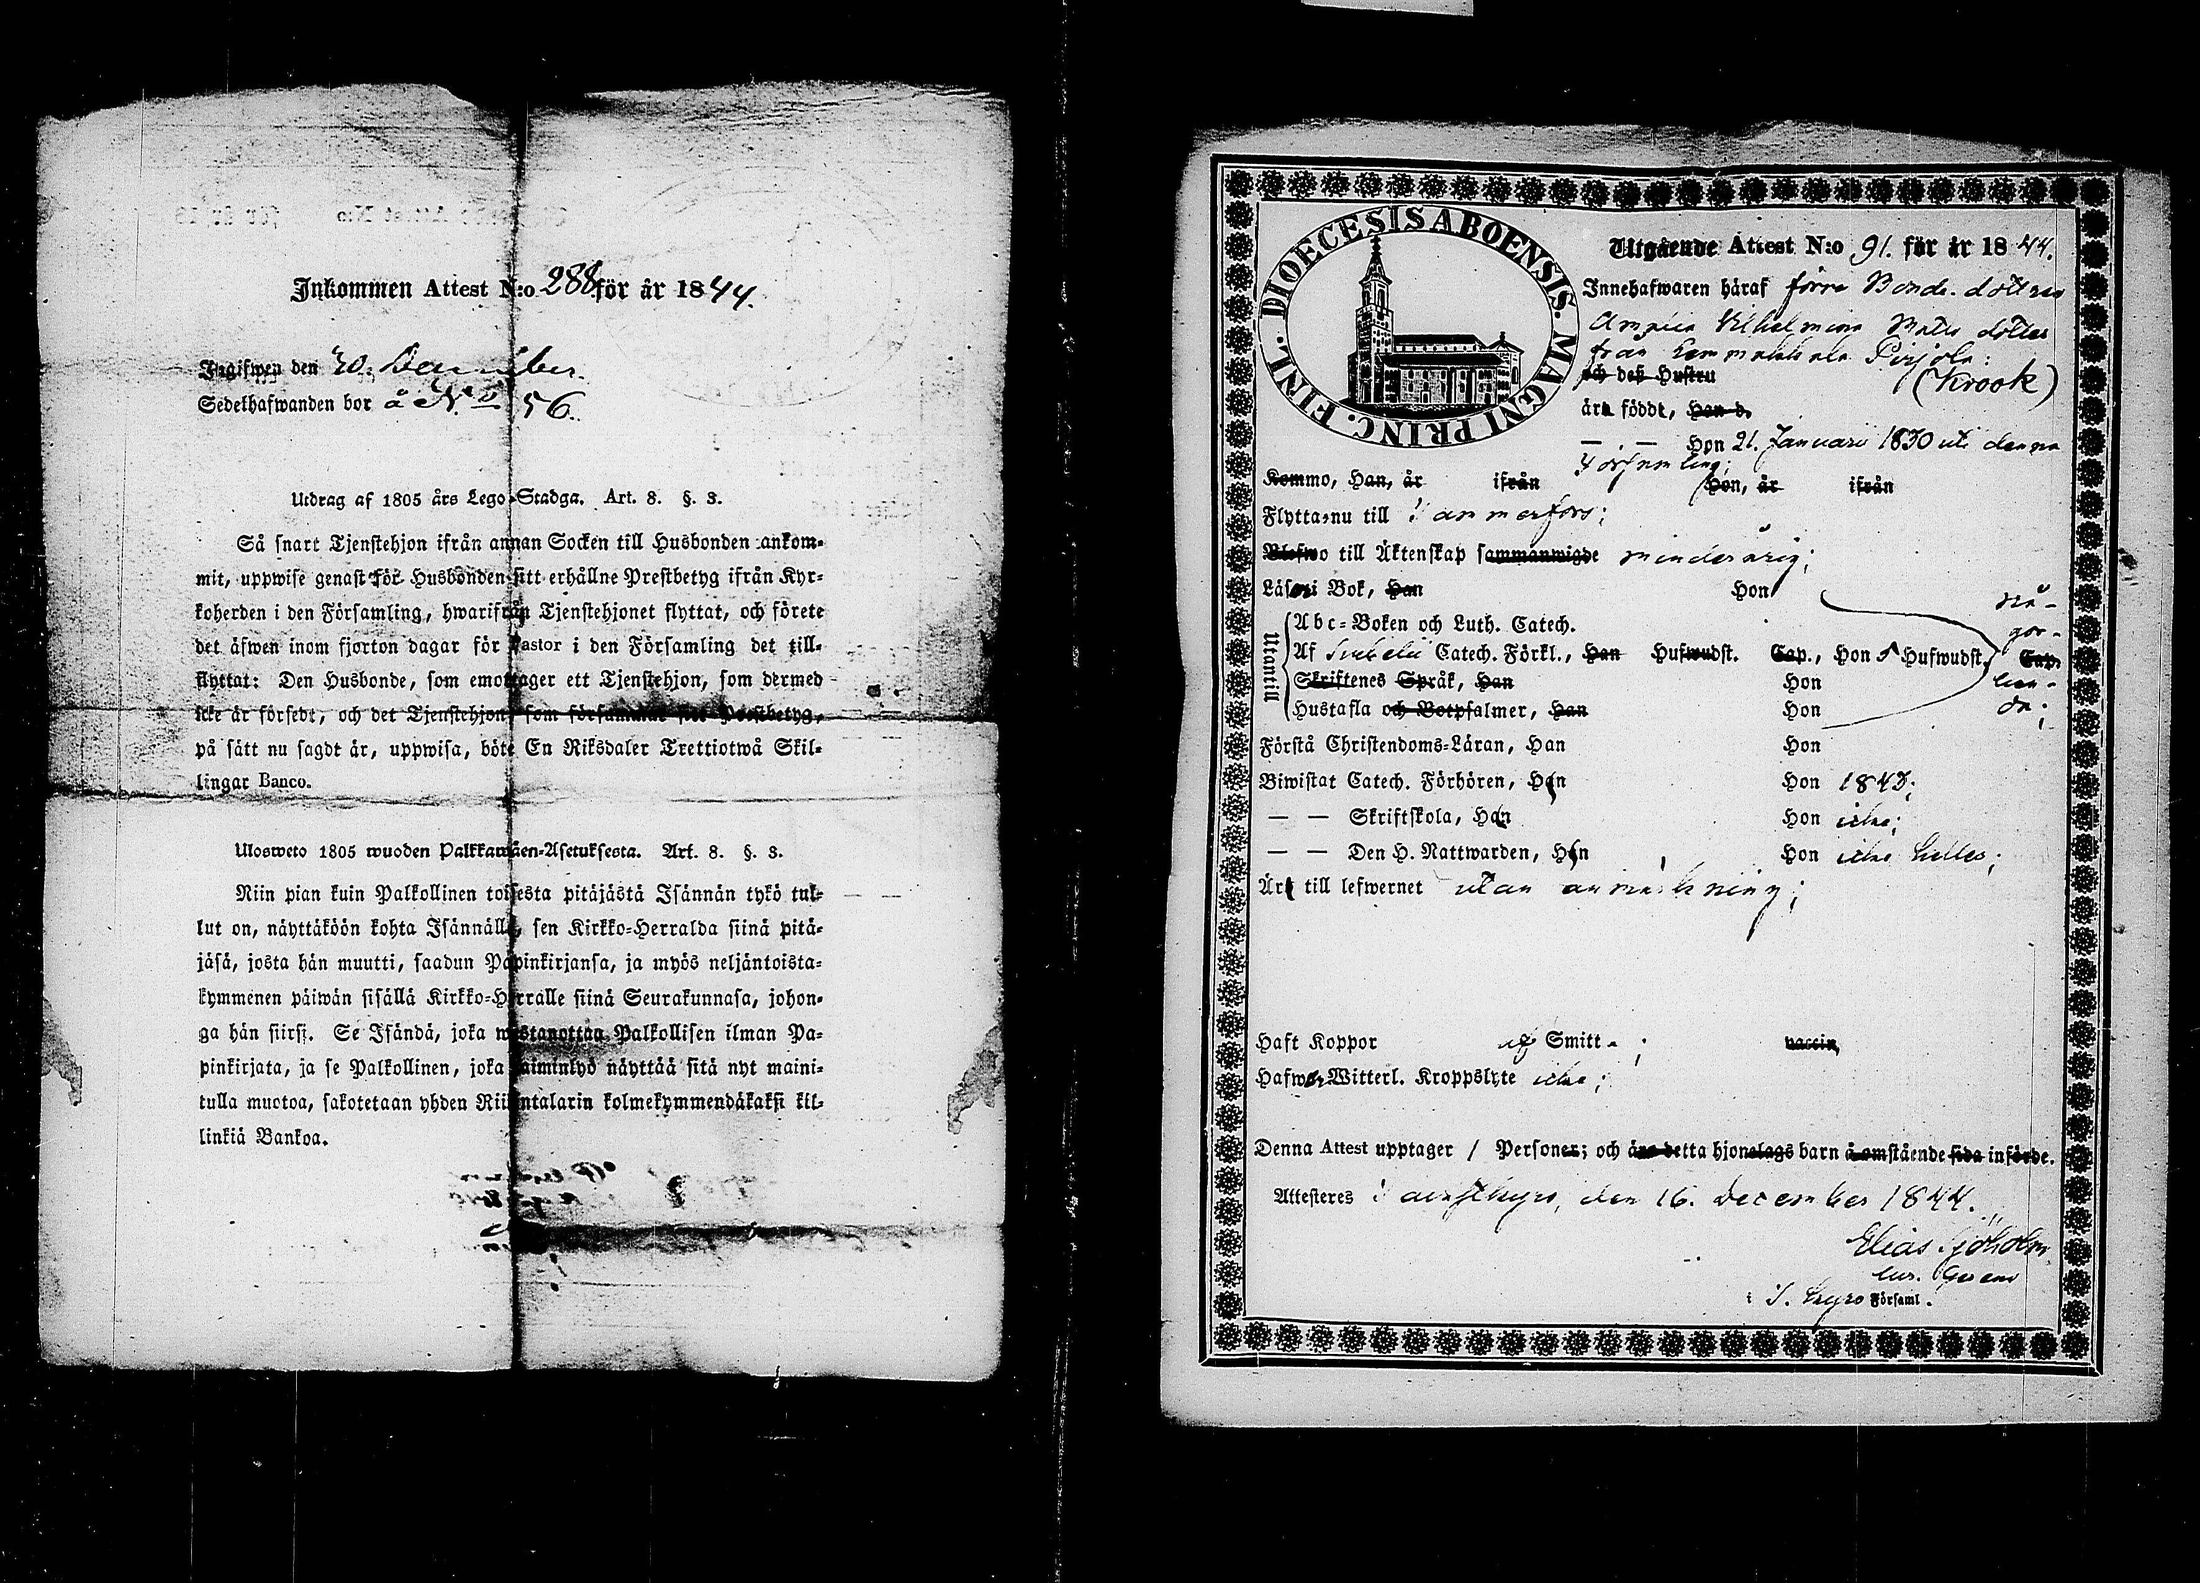 Inkommen Attest N:o 288 för år 1844.
Ingifwen den 30. December.
Sedelhafwanden bor å N:o 56.
Utdrag af 1805 års Lego-Stadga. Art. 8. §. 3.
Så snart Tjenstehjon ifrån annan Socken till Husbonden ankom-
mit, uppwise genast för Husbonden sitt erhållne Prestbetyg ifrån Kyr-
koherden i den Församling, hwarifrån Tjenstehjonet flyttat, och förete
det äfwen inom fjorton dagar för Pastor i den Församling det till-
flyttat: Den Husbonde, som emottager ett Tjenstehjon, som dermed
icke är försedt, och det Tjenstehjon, som försummar sitt Prestbetyg,
på sätt nu sagdt är, uppwisa, böte En Riksdaler Trettiotwå Skil-
lingar Banco.
Ulosweto 1805 wuoden Palkkawäen-Asetuksesta. Art. 8. §. 3.
Niin pian kuin Palkollinen toisesta pitäjästä Isännän tykö tul-
lut on, näyttäköön kohta Isännälle, sen Kirkko-Herralda siinä pitä-
jäsä, josta hän muutti, saadun Papinkirjansa, ja myös neljäntoista-
kymmenen päiwän sisällä Kirkko-Herralle siinä Seurakunnasa, johon-
ga hän siirsi. Se Isändä, joka wastanottaa Palkollisen ilman Pa-
pinkirjata, ja se Palkollinen, joka laiminlyö näyttää sitä nyt maini-
tulla muotoa, sakotetaan yhden Riikintalarin kolmekymmendäkaksi kil-
linkiä Bankoa.
DIOECESIS ABOENSIS. MAGNI PRINC. FINL.
Utgående Attest N:o 91. för år 1844.
Innehafwaren häraf förre Bonde dottren
Wilhelmina Matts dotter
från Pirjola:
och deß Hustru (Krook)
äro född, Han d.
— — Hon 21. Januari 1830 uti denna
Församling;
Kommo, Han, år ifrån Hon, år ifrån
Flytta nu till Tammerfors;
Blefwo till Äktenskap sammanwigde minderårig;
Läsa i Bok, Han Hon
Utantill
Abc-Boken och Luth. Catech.
Af Svebelii Catech. Förkl., Han Hufwudst. Cap., Hon 5 Hufwudst. Cap.
Skriftenes Språk, Han Hon
Hustafla och Botpsalmer, Han Hon
någor-
lun-
da;
Förstå Christendoms-Läran, Han Hon
Biwistat Catech. Förhören, Han Hon 1843;
— — Skriftskola, Han Hon icke;
— — Den H. Nattwarden, Han Hon icke heller;
Äro till lefwernet utan anmärkning;
Haft Koppor af Smitt-; vaccin,
Hafwa Witterl. Kroppslyte icke;
Denna Attest upptager 1 Personer; och äro detta hjonelags barn å omstående sida införde.
Attesteres i Tavastkyro, den 16. December 1844.
Elias Sjöholm,
i T. Kyro Församl.